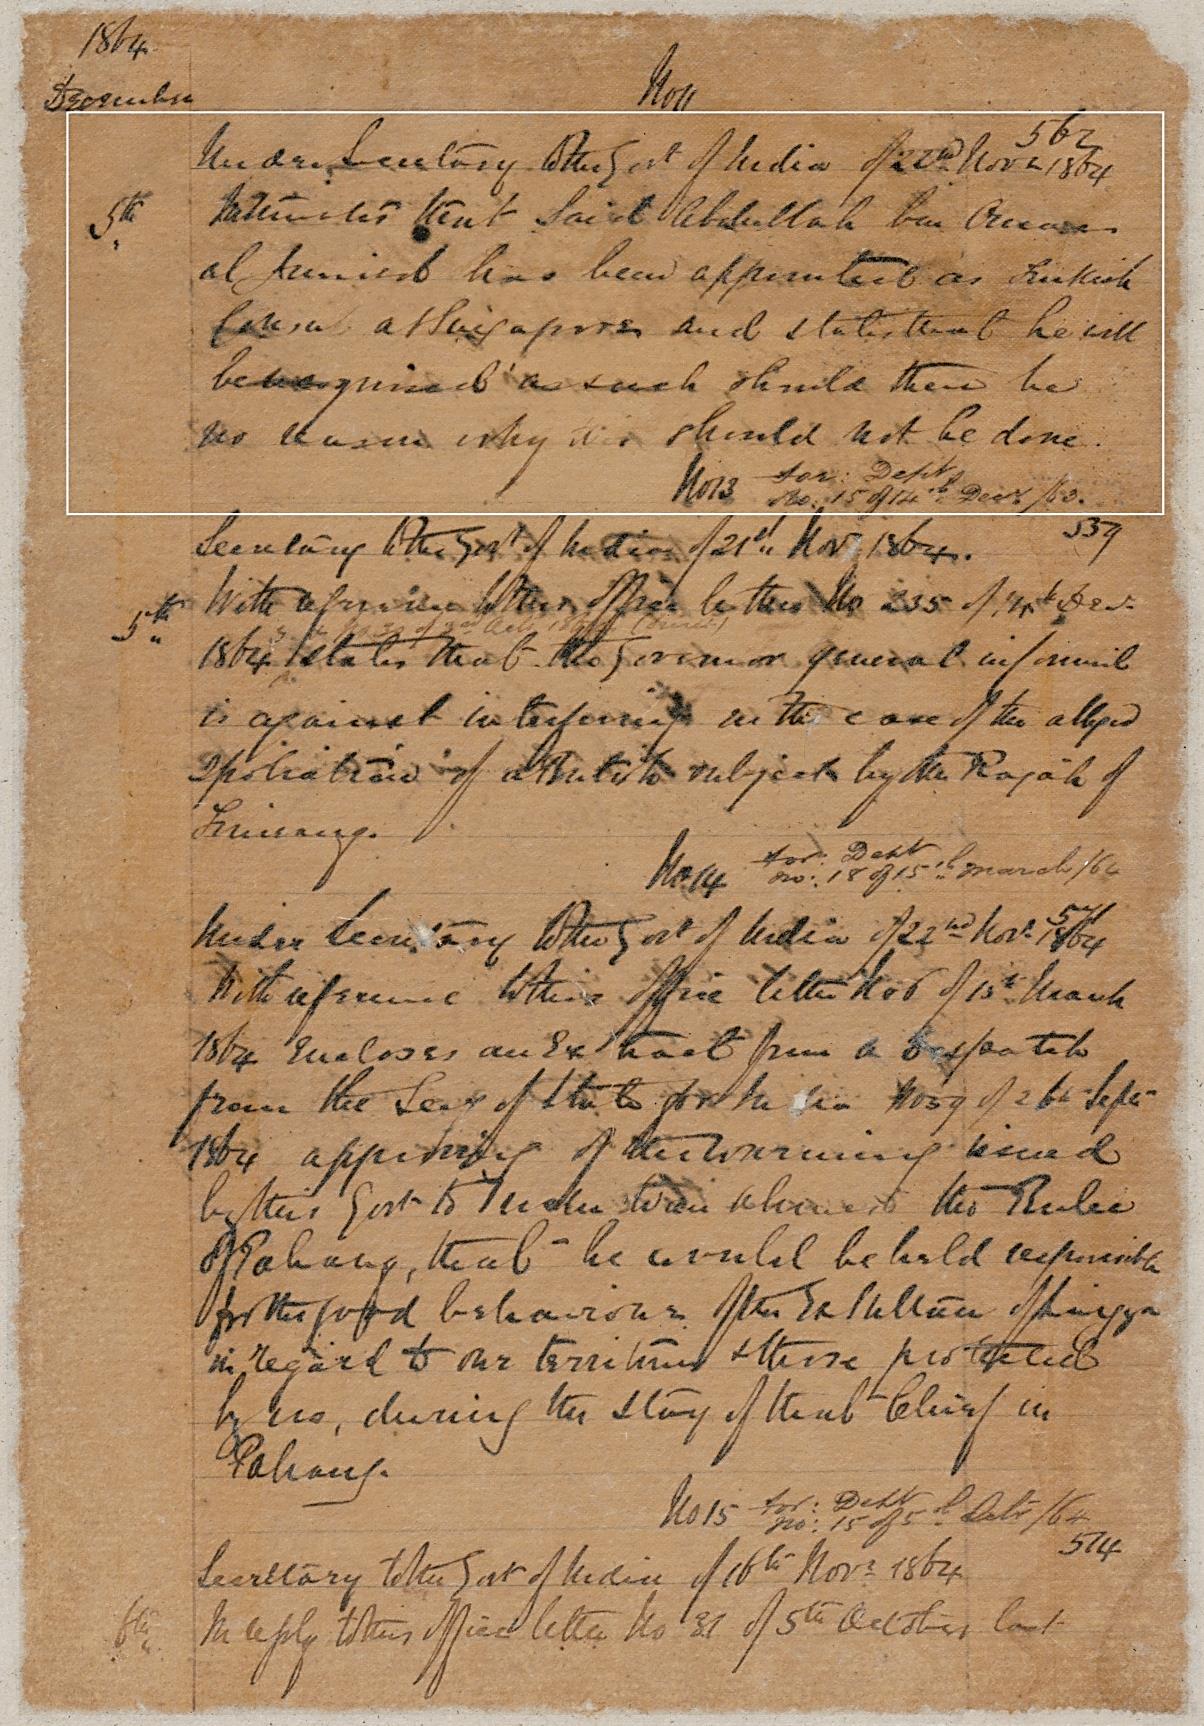 1864
December
No 11
562
Under Secretary to the Govt of India of 22nd Novr 1864
5th Intimates that Said Abdullah bin Omar
al Junied has been appointed as Turkish
Consul at Singapore and states that he will
be recognised as such should there be
no reason why this should not be done.
No 13 For: Dept
No: 15 of 14th Decr /63.
539
Secretary to the Govt of India of 21st Novr 1864.
5th With reference to this office letter No 235 of
1864 states that the Governor general in Council
is against interfering in the case of the alleged
Spoliation of a British subject by the Rajah of
No 14 For: Dept
No: 18 of 15th March /64
Under Secretary to the Govt of India of 22nd Novr 1864
With reference to this office letter No 6 of 15th March
1864 Encloses an Extract from a Despatch
from the Secy of State for India No 59 of 26th Septr
1864 approving of the warning issued
by this Govt to the Ruler
of Pahang, that he would be held responsible
for the good behaviour of the Ex Sultan of Lingga
in regard to our territories & those protected
by us, during the stay of that Chief in
Pahang.
No 15 For: Dept
No: 15 of 5th /64
514
Secretary to the Govt of India of 16th Novr 1864
6th In reply to this office letter No 31 of 5th October last